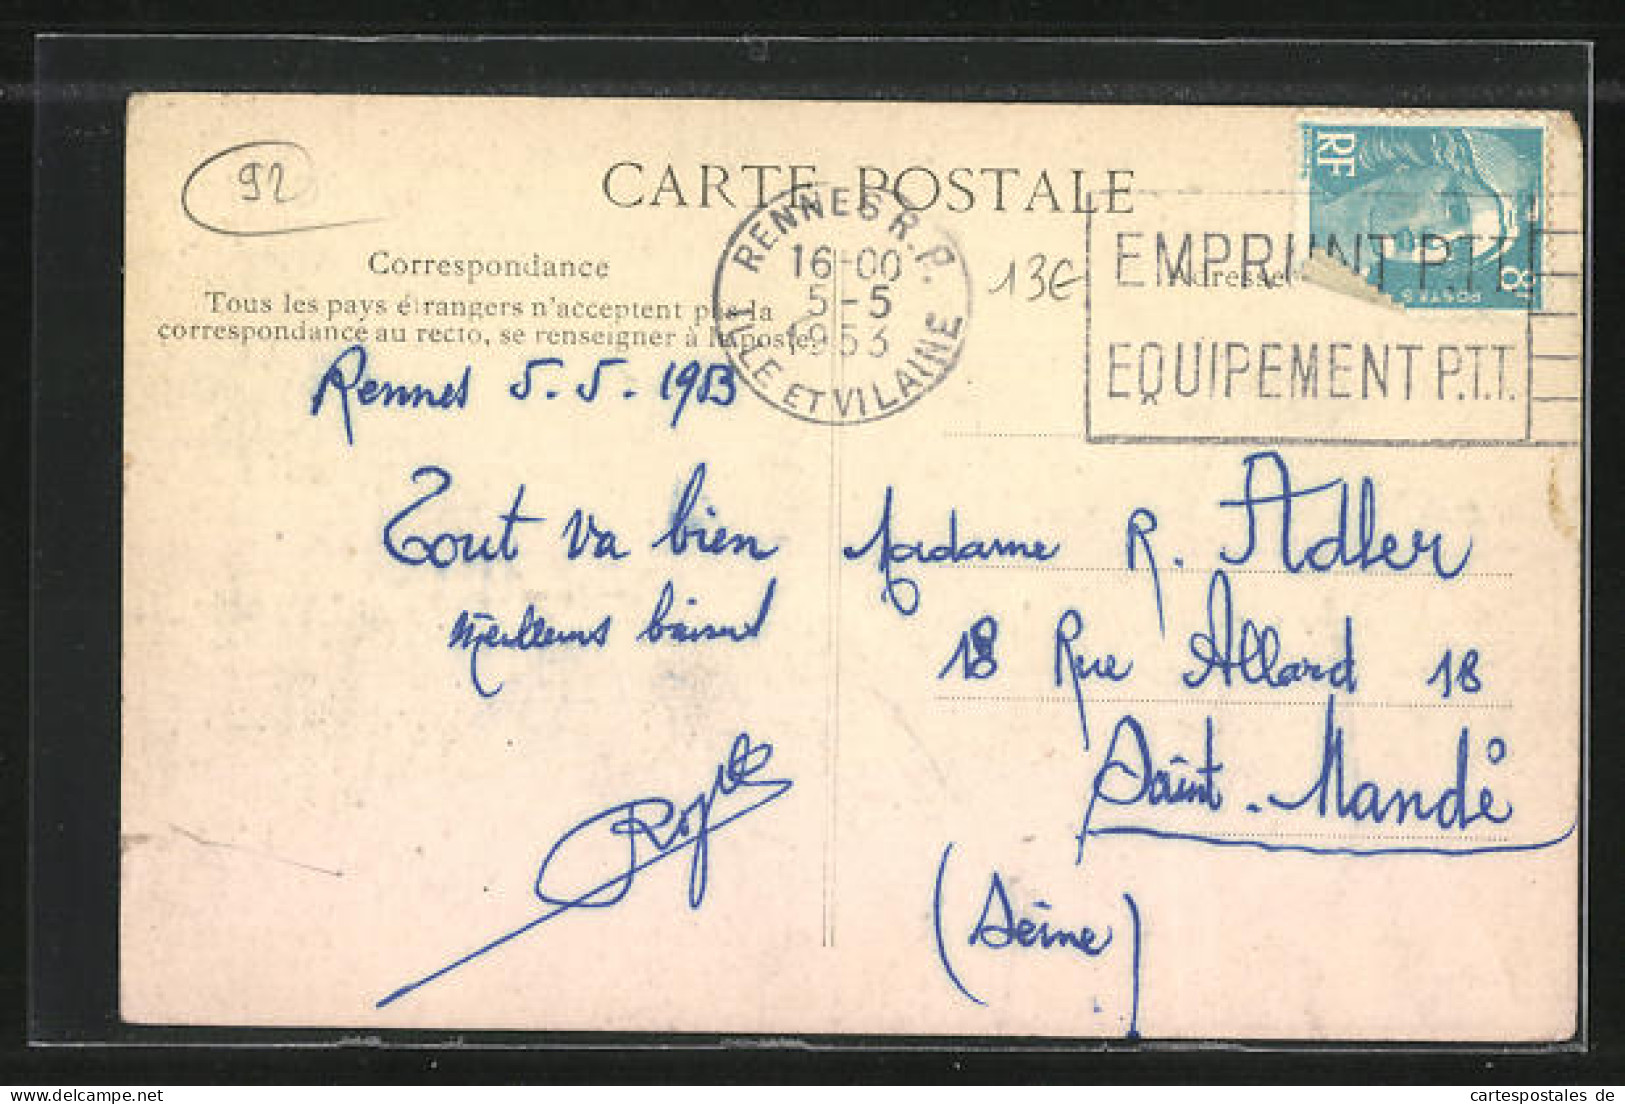 92
CARTE POSTALE
RENNES R.P.
16-00
5-5
1953
ILLE ET VILAINE
13€
RF
8F
POSTES
EMPRUNT P.T.T.
EQUIPEMENT P.T.T.
Correspondance
Adresse
Tous les pays étrangers n'acceptent pas la
correspondance au recto, se renseigner à la poste
Rennes 5.5.1953
Tout va bien
Meilleurs baisers
Madame R. Adler
18 Rue Allard 18
Saint-Mandé
(Seine)
www.cartespostales.de